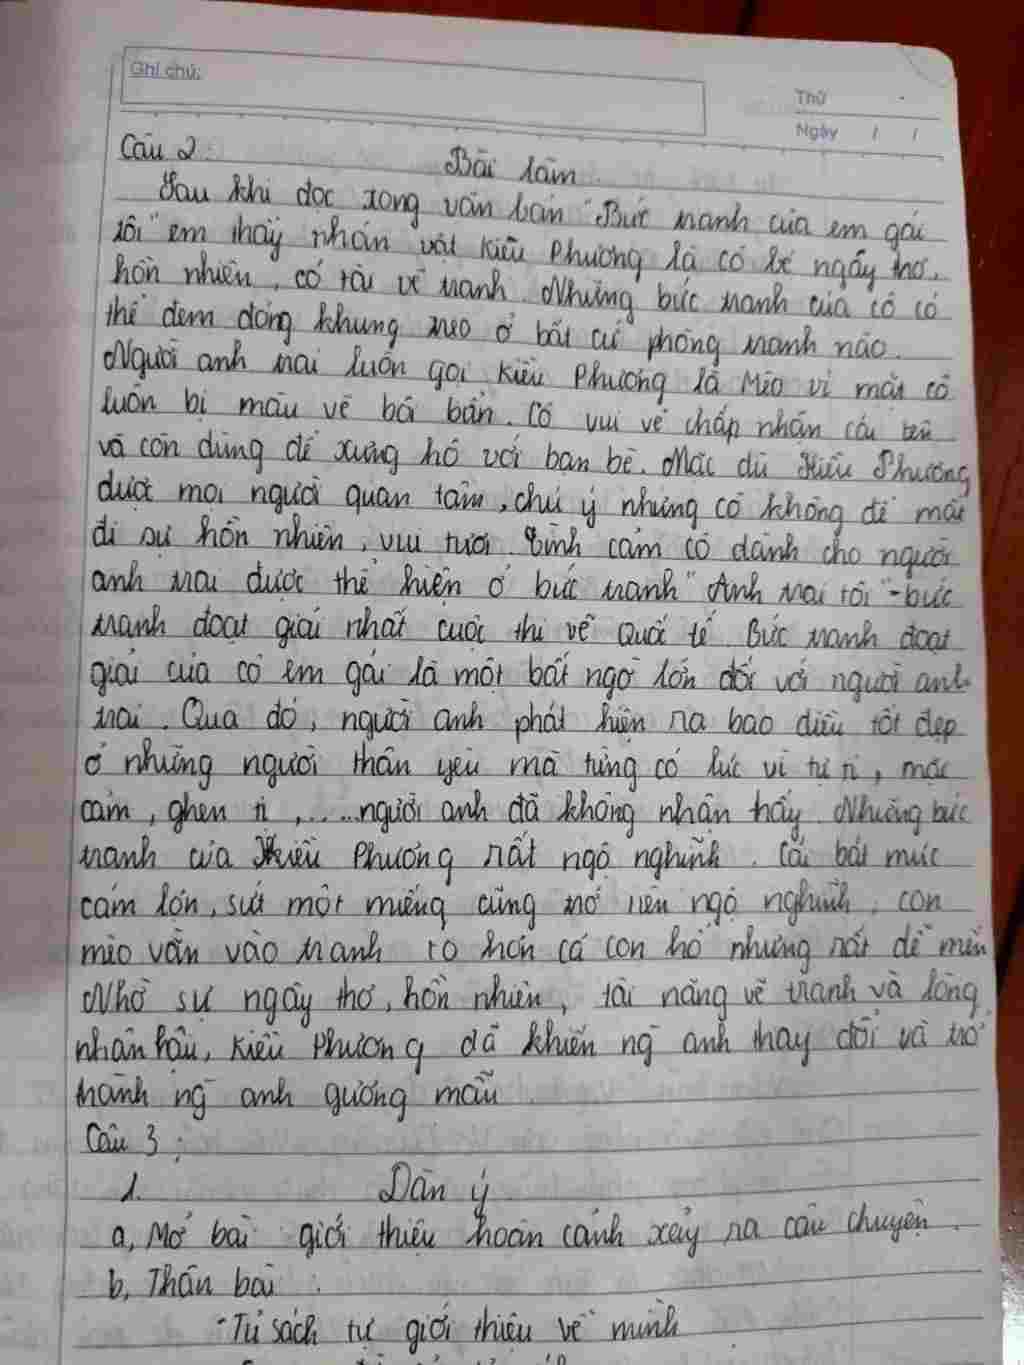 Ghi chú:
Thứ
Ngày / /
Câu 2: Bài làm
Sau khi đọc xong văn bản "Bức tranh của em gái
tôi" em thấy nhân vật Kiều Phương là cô bé ngây thơ,
hồn nhiên, có tài vẽ tranh. Những bức tranh của cô có
thể đem đóng khung treo ở bất cứ phòng tranh nào.
Người anh trai luôn gọi Kiều Phương là Mèo vì mặt cô
luôn bị màu vẽ bôi bẩn. Cô vui vẻ chấp nhận cái tên
và còn dùng để xưng hô với bạn bè. Mặc dù Kiều Phương
được mọi người quan tâm, chú ý nhưng cô không để mất
đi sự hồn nhiên, vui tươi. Tình cảm cô dành cho người
anh trai được thể hiện ở bức tranh "Anh trai tôi" - bức
tranh đoạt giải nhất cuộc thi vẽ Quốc tế. Bức tranh đoạt
giải của cô em gái là một bất ngờ lớn đối với người anh
trai. Qua đó, người anh phát hiện ra bao điều tốt đẹp
ở những người thân yêu mà từng có lúc vì tự ti, mặc
cảm, ghen tị,.....người anh đã không nhận thấy. Những bức
tranh của Kiều Phương rất ngộ nghĩnh. Cái bát múc
cám lớn, sứt một miếng cũng trở nên ngộ nghĩnh, con
mèo vằn vào tranh to hơn cả con hổ nhưng rất dễ mến
Nhờ sự ngây thơ, hồn nhiên, tài năng vẽ tranh và lòng
nhân hậu, Kiều Phương đã khiến ng anh thay đổi và trở
thành ng anh gương mẫu
Câu 3:
1. Dàn ý
a, Mở bài: giới thiệu hoàn cảnh xảy ra câu chuyện.
b, Thân bài
- Tủ sách tự giới thiệu về mình